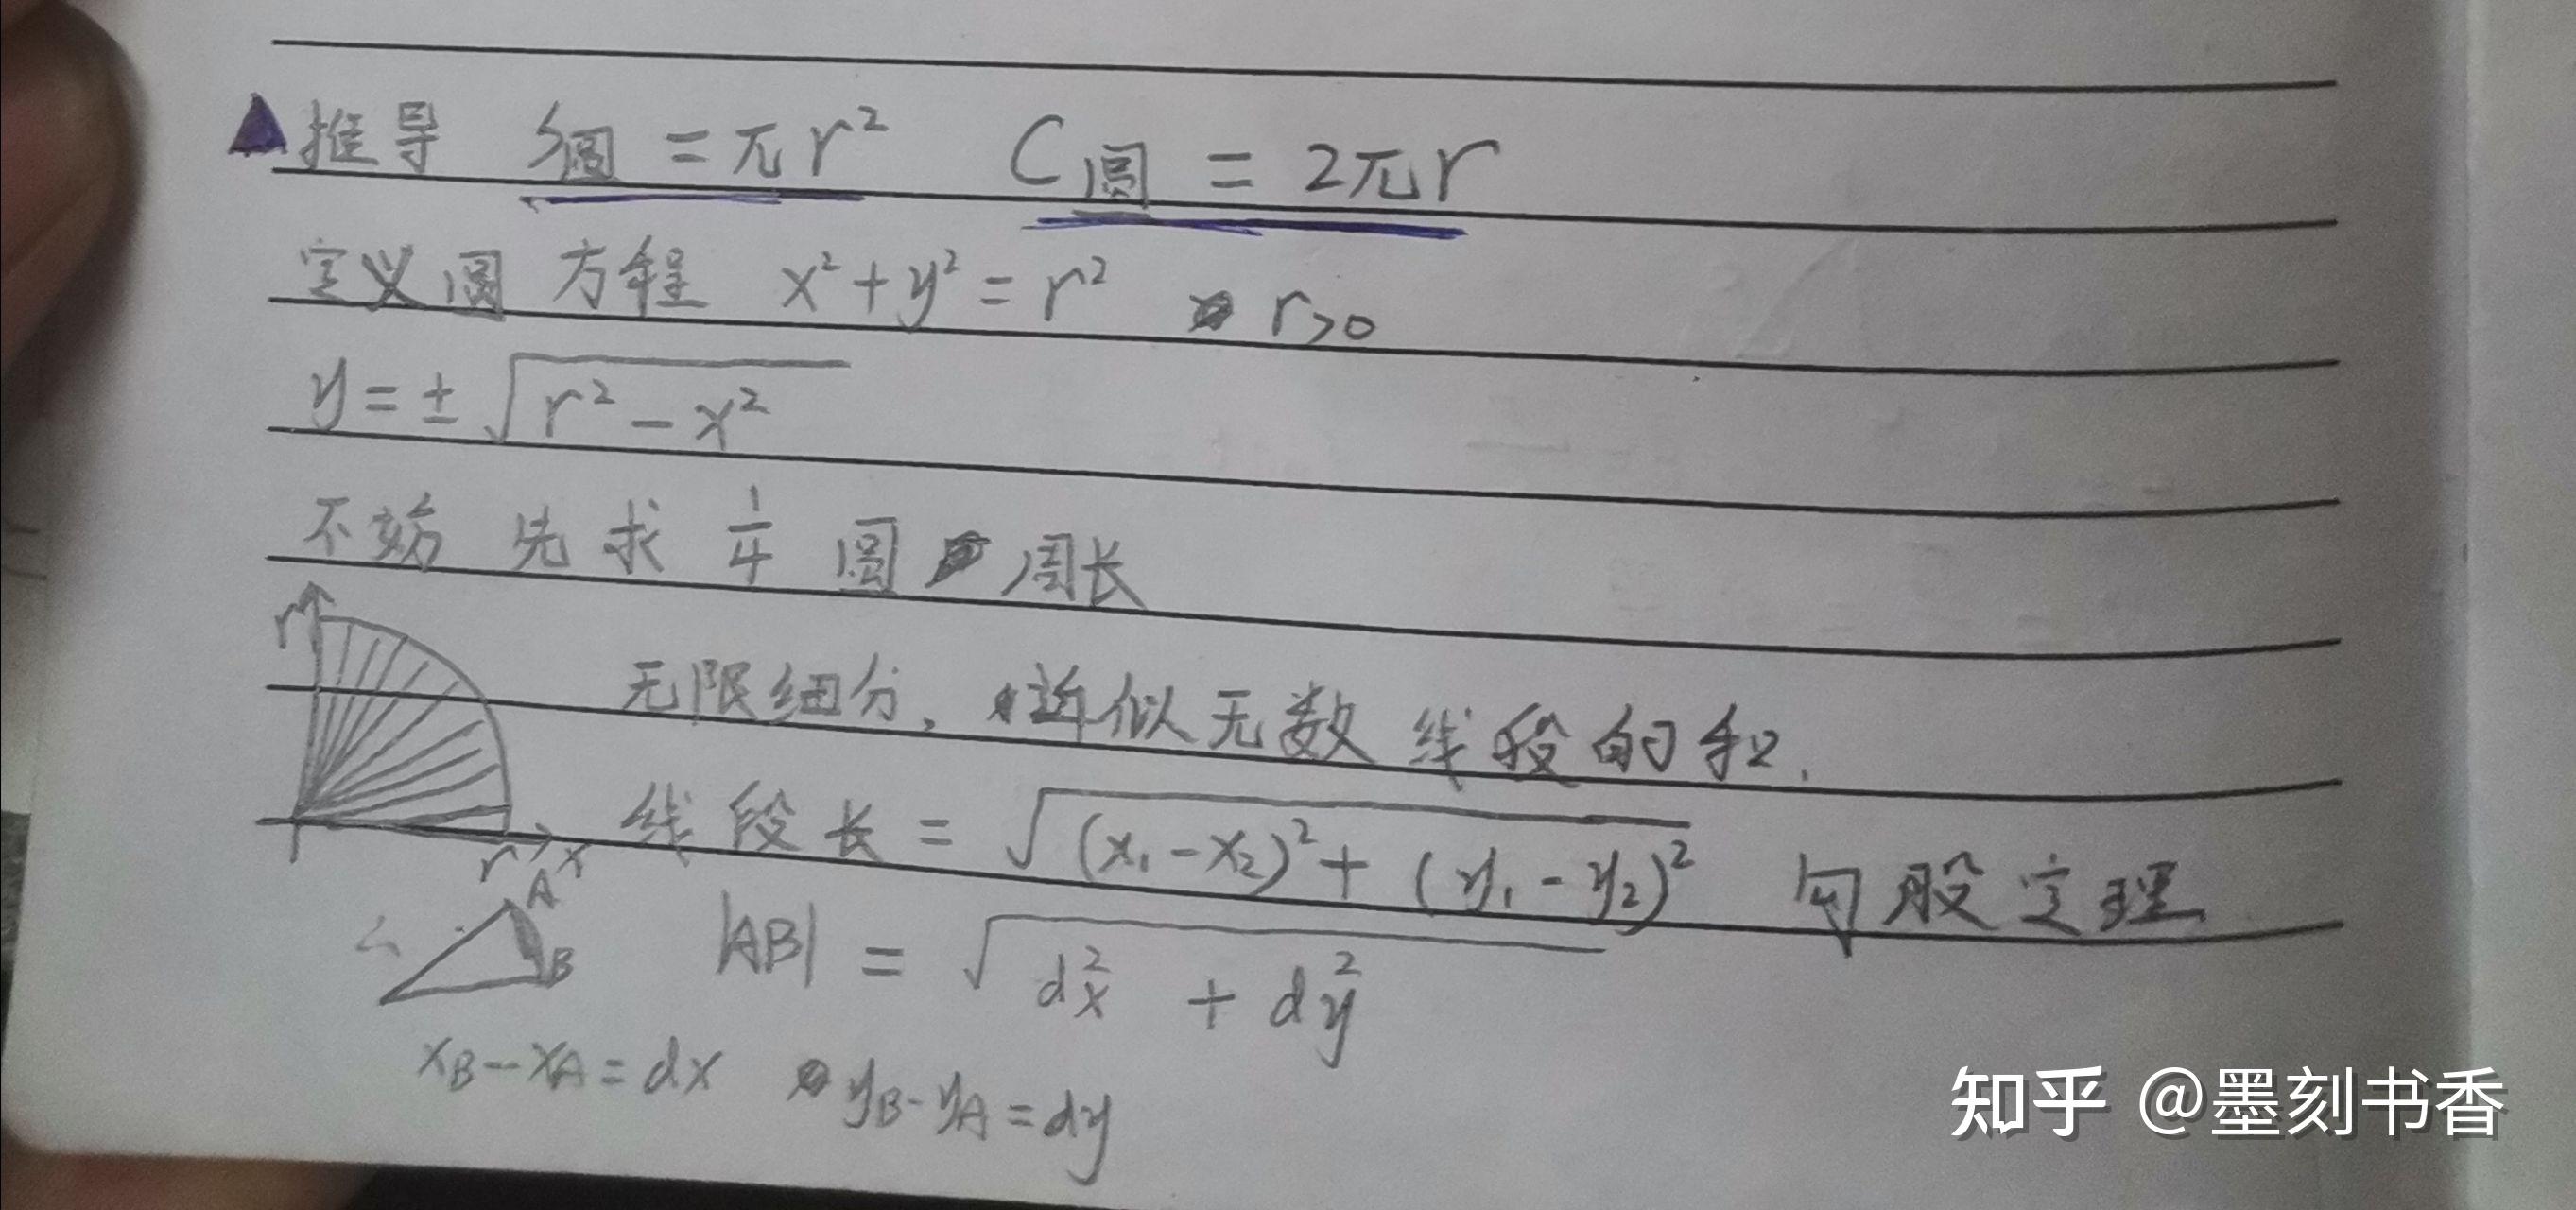 ▲推导 S圆 = πr² C圆 = 2πr
定义圆 方程 x²+y²=r² r>0
y=±√(r²-x²)
不妨 先求 1/4 圆 周长
r
无限细分, 近似无数线段的和.
线段长 = √((x₁-x₂)²+(y₁-y₂)²) 勾股定理
r x
A
|AB| = √(dx² + dy²)
B
xB-xA=dx yB-yA=dy
知乎 @墨刻书香